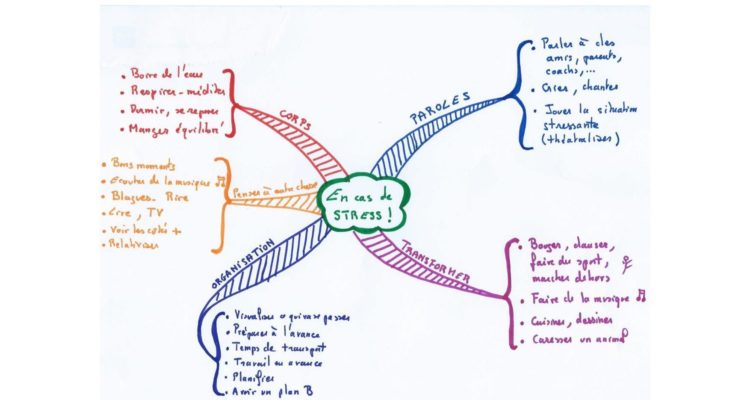 En cas de
STRESS !
CORPS
• Boire de l'eau
• Respirer - méditer
• Dormir, se reposer
• Manger équilibré
PAROLES
• Parler à des
amis, parents,
coachs,...
• Crier, chanter
• Jouer la situation
stressante
(théâtraliser)
Penser à autre chose
• Bons moments
• Ecouter de la musique
• Blagues. Rire
• Lire, TV
• Voir les côtés +
• Relativiser
ORGANISATION
• Visualiser ce qui va se passer
• Préparer à l'avance
• Temps de transport
• Travail en avance
• Planifier
• Avoir un plan B
TRANSFORMER
• Bouger, danser,
faire du sport,
marcher dehors
• Faire de la musique
• Cuisiner, dessiner
• Caresser un animal